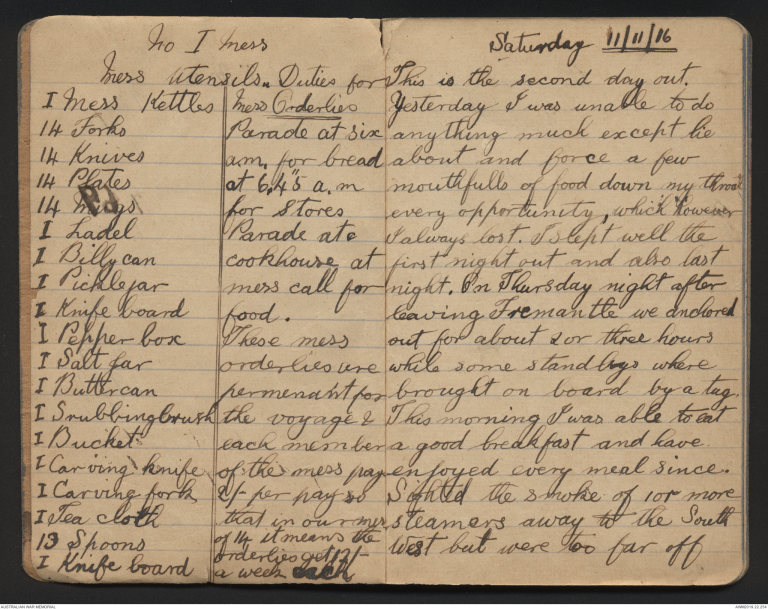 No I Mess
Mess Utensils. Duties for
I Mess Kettles
14 Forks
14 Knives
14 Plates
14 Mugs
I Ladel
I Billycan
I Picklejar
I Knife board
I Pepper box
I Salt jar
I Buttercan
I Srubbingbrush
I Bucket
I Carving knife
I Carving fork
I Tea cloth
13 Spoons
I Knife board
Mess Orderlies
Parade at six
a.m. for bread
at 6.45 a.m
for stores
Parade at
cookhouse at
mess call for
food.
These mess
orderlies are
permenant for
the voyage &
each member
of the mess pay
2/- per pay so
that in our mess
of 14 it means the
orderlies get 12/-
a week each
Saturday 11/11/16
This is the second day out.
Yesterday I was unable to do
anything much except lie
about and force a few
mouthfulls of food down my throat
every opportunity, which however
I always lost. I slept well the
first night out and also last
night. On Thursday night after
leaving Fremantle we anchored
out for about 2 or three hours
while some standbys where
brought on board by a tug.
This morning I was able to eat
a good breakfast and have
enjoyed every meal since.
Sighted the smoke of 1 or more
steamers away to the South
West but were too far off
AUSTRALIAN WAR MEMORIAL